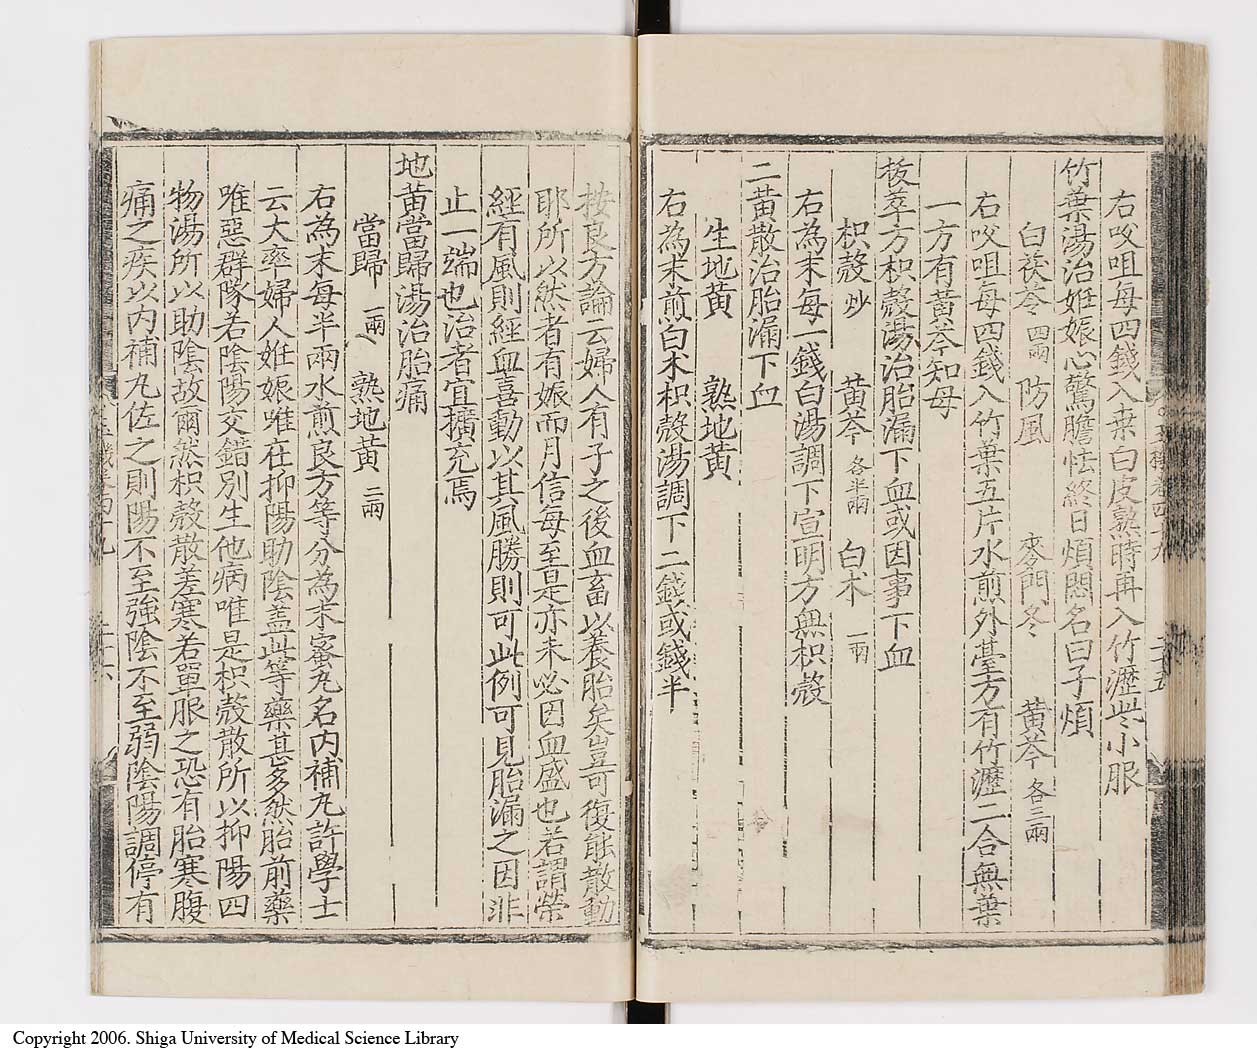 右㕮咀每四錢入桒白皮熟時再入竹瀝些小服
竹葉湯治姙娠心驚膽怯終日煩悶名曰子煩
白茯苓四兩 防風 麥門冬 黃芩各三兩
右㕮咀每四錢入竹葉五片水煎外臺方有竹瀝二合無葉
一方有黃芩知母
拔萃方枳殼湯治胎漏下血或因事下血
枳殼炒 黃芩各半兩 白朮一兩
右為末每一錢白湯調下宣明方無枳殼
二黃散治胎漏下血
生地黃 熟地黃
右為末煎白朮枳殼湯調下二錢或錢半
按良方論云婦人有子之後血畜以養胎矣豈可復能散動
耶所以然者有娠而月信每至是亦未必因血盛也若謂榮
經有風則經血喜動以其風勝則可此例可見胎漏之因非
止一端也治者宜擴充焉
地黃當歸湯治胎痛
當歸一兩 熟地黃二兩
右為末每半兩水煎良方等分為末蜜丸名内補丸許學士
云大率婦人姙娠唯在抑陽助陰盖此等藥甚多然胎前藥
唯惡群隊若陰陽交錯別生他病唯是枳殼散所以抑陽四
物湯所以助陰故爾然枳殼散差寒若單服之恐有胎寒腹
痛之疾以内補丸佐之則陽不至強陰不至弱陰陽調停有
Copyright 2006. Shiga University of Medical Science Library